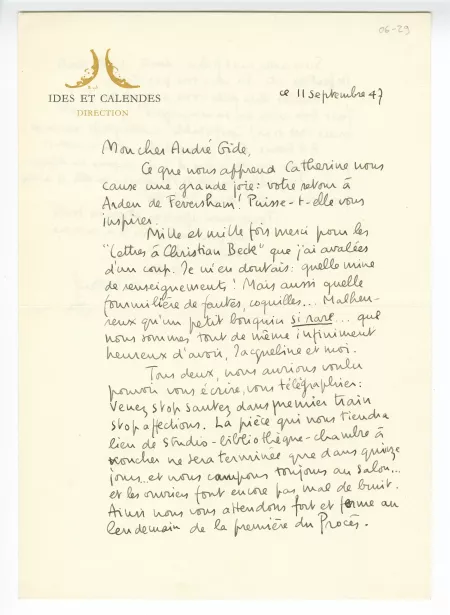 06-29
IDES ET CALENDES
DIRECTION
ce 11 septembre 47
Mon cher André Gide,
Ce que nous apprend Catherine nous
cause une grande joie : votre retour à
Arden de Feversham ! Puisse-t-elle vous
inspirer.
Mille et mille fois merci pour les
"Lettres à Christian Beck" que j'ai avalées
d'un coup. Je m'en doutais : quelle mine
de renseignements ! Mais aussi quelle
fourmilière de fautes, coquilles... Malheu-
reux qu'un petit bouquin si rare... que
nous sommes tout de même infiniment
heureux d'avoir, Jacqueline et moi.
Tous deux, nous aurions voulu
pouvoir vous écrire, vous télégraphier :
Venez stop sautez dans premier train
stop affections. La pièce qui nous tiendra
lieu de studio-bibliothèque-chambre à
coucher ne sera terminée que dans quinze
jours et nous campons toujours au salon...
et les ouvriers font encore pas mal de bruit.
Ainsi nous vous attendons fort et ferme au
lendemain de la première du Procès.